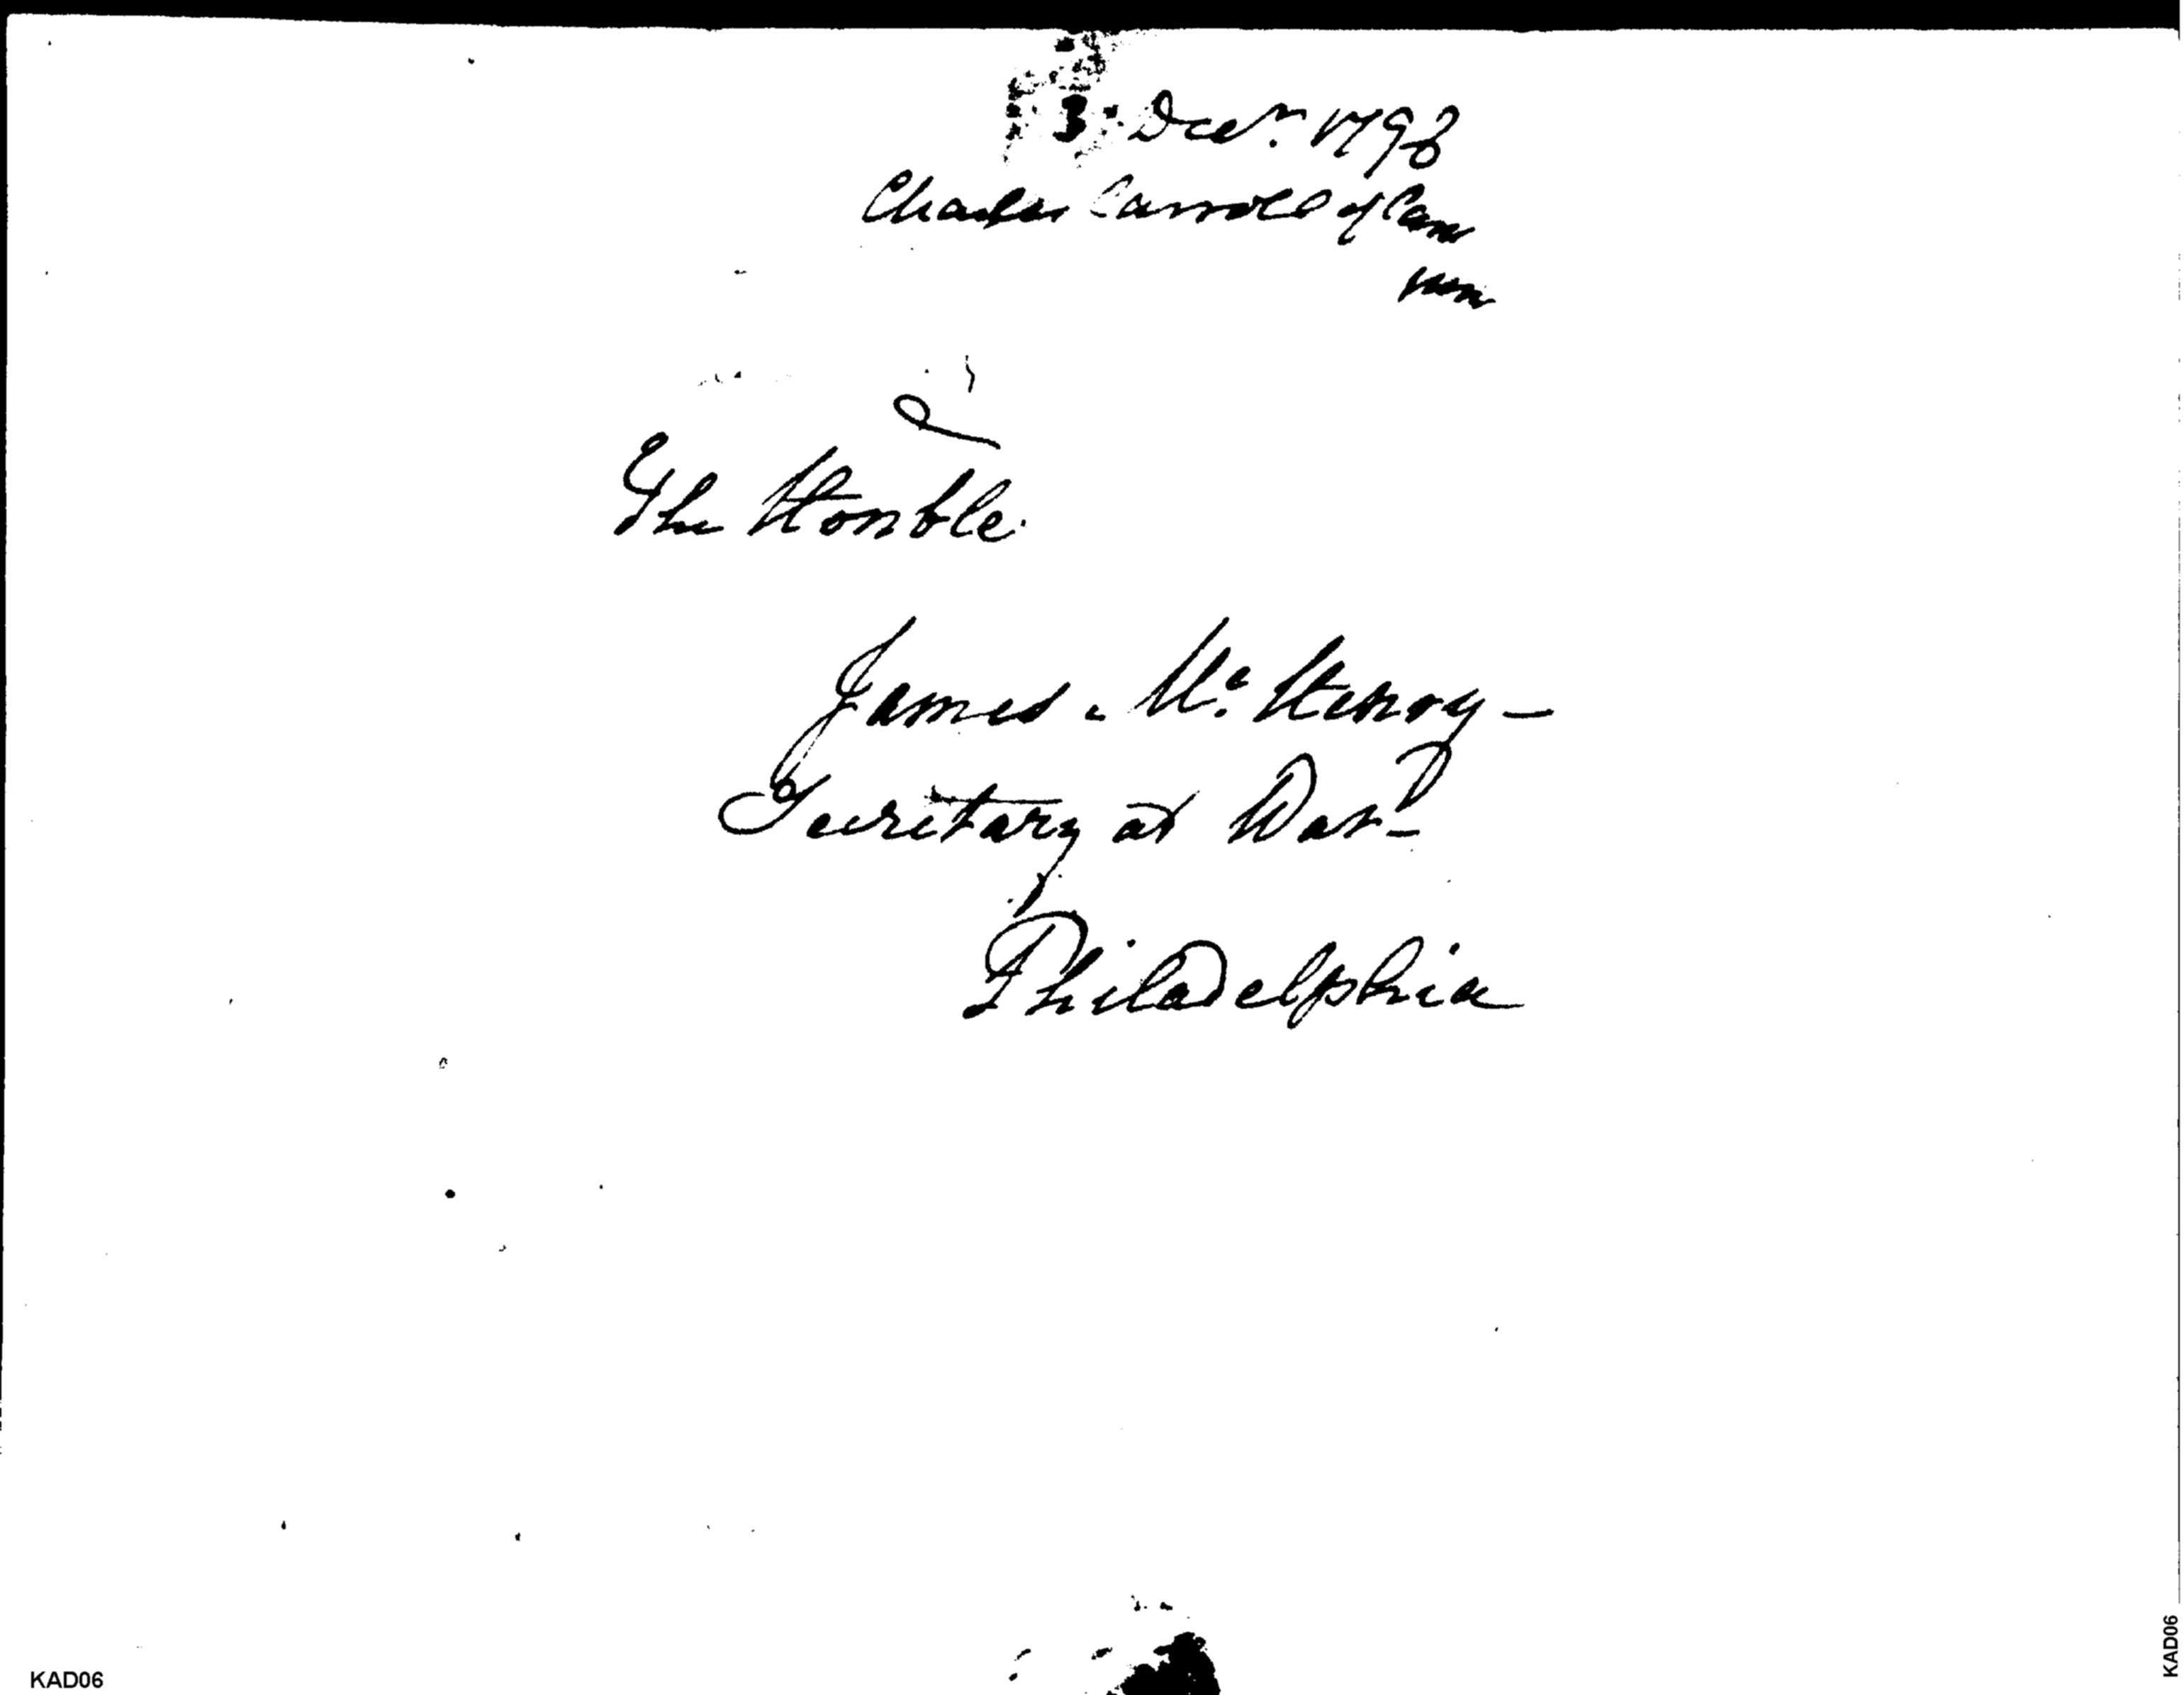 3. Decr. 1798
Charles Carroll of Car
The Honble.
James McHenry—
Secretary at War—
Philadelphia
KAD06
KAD06